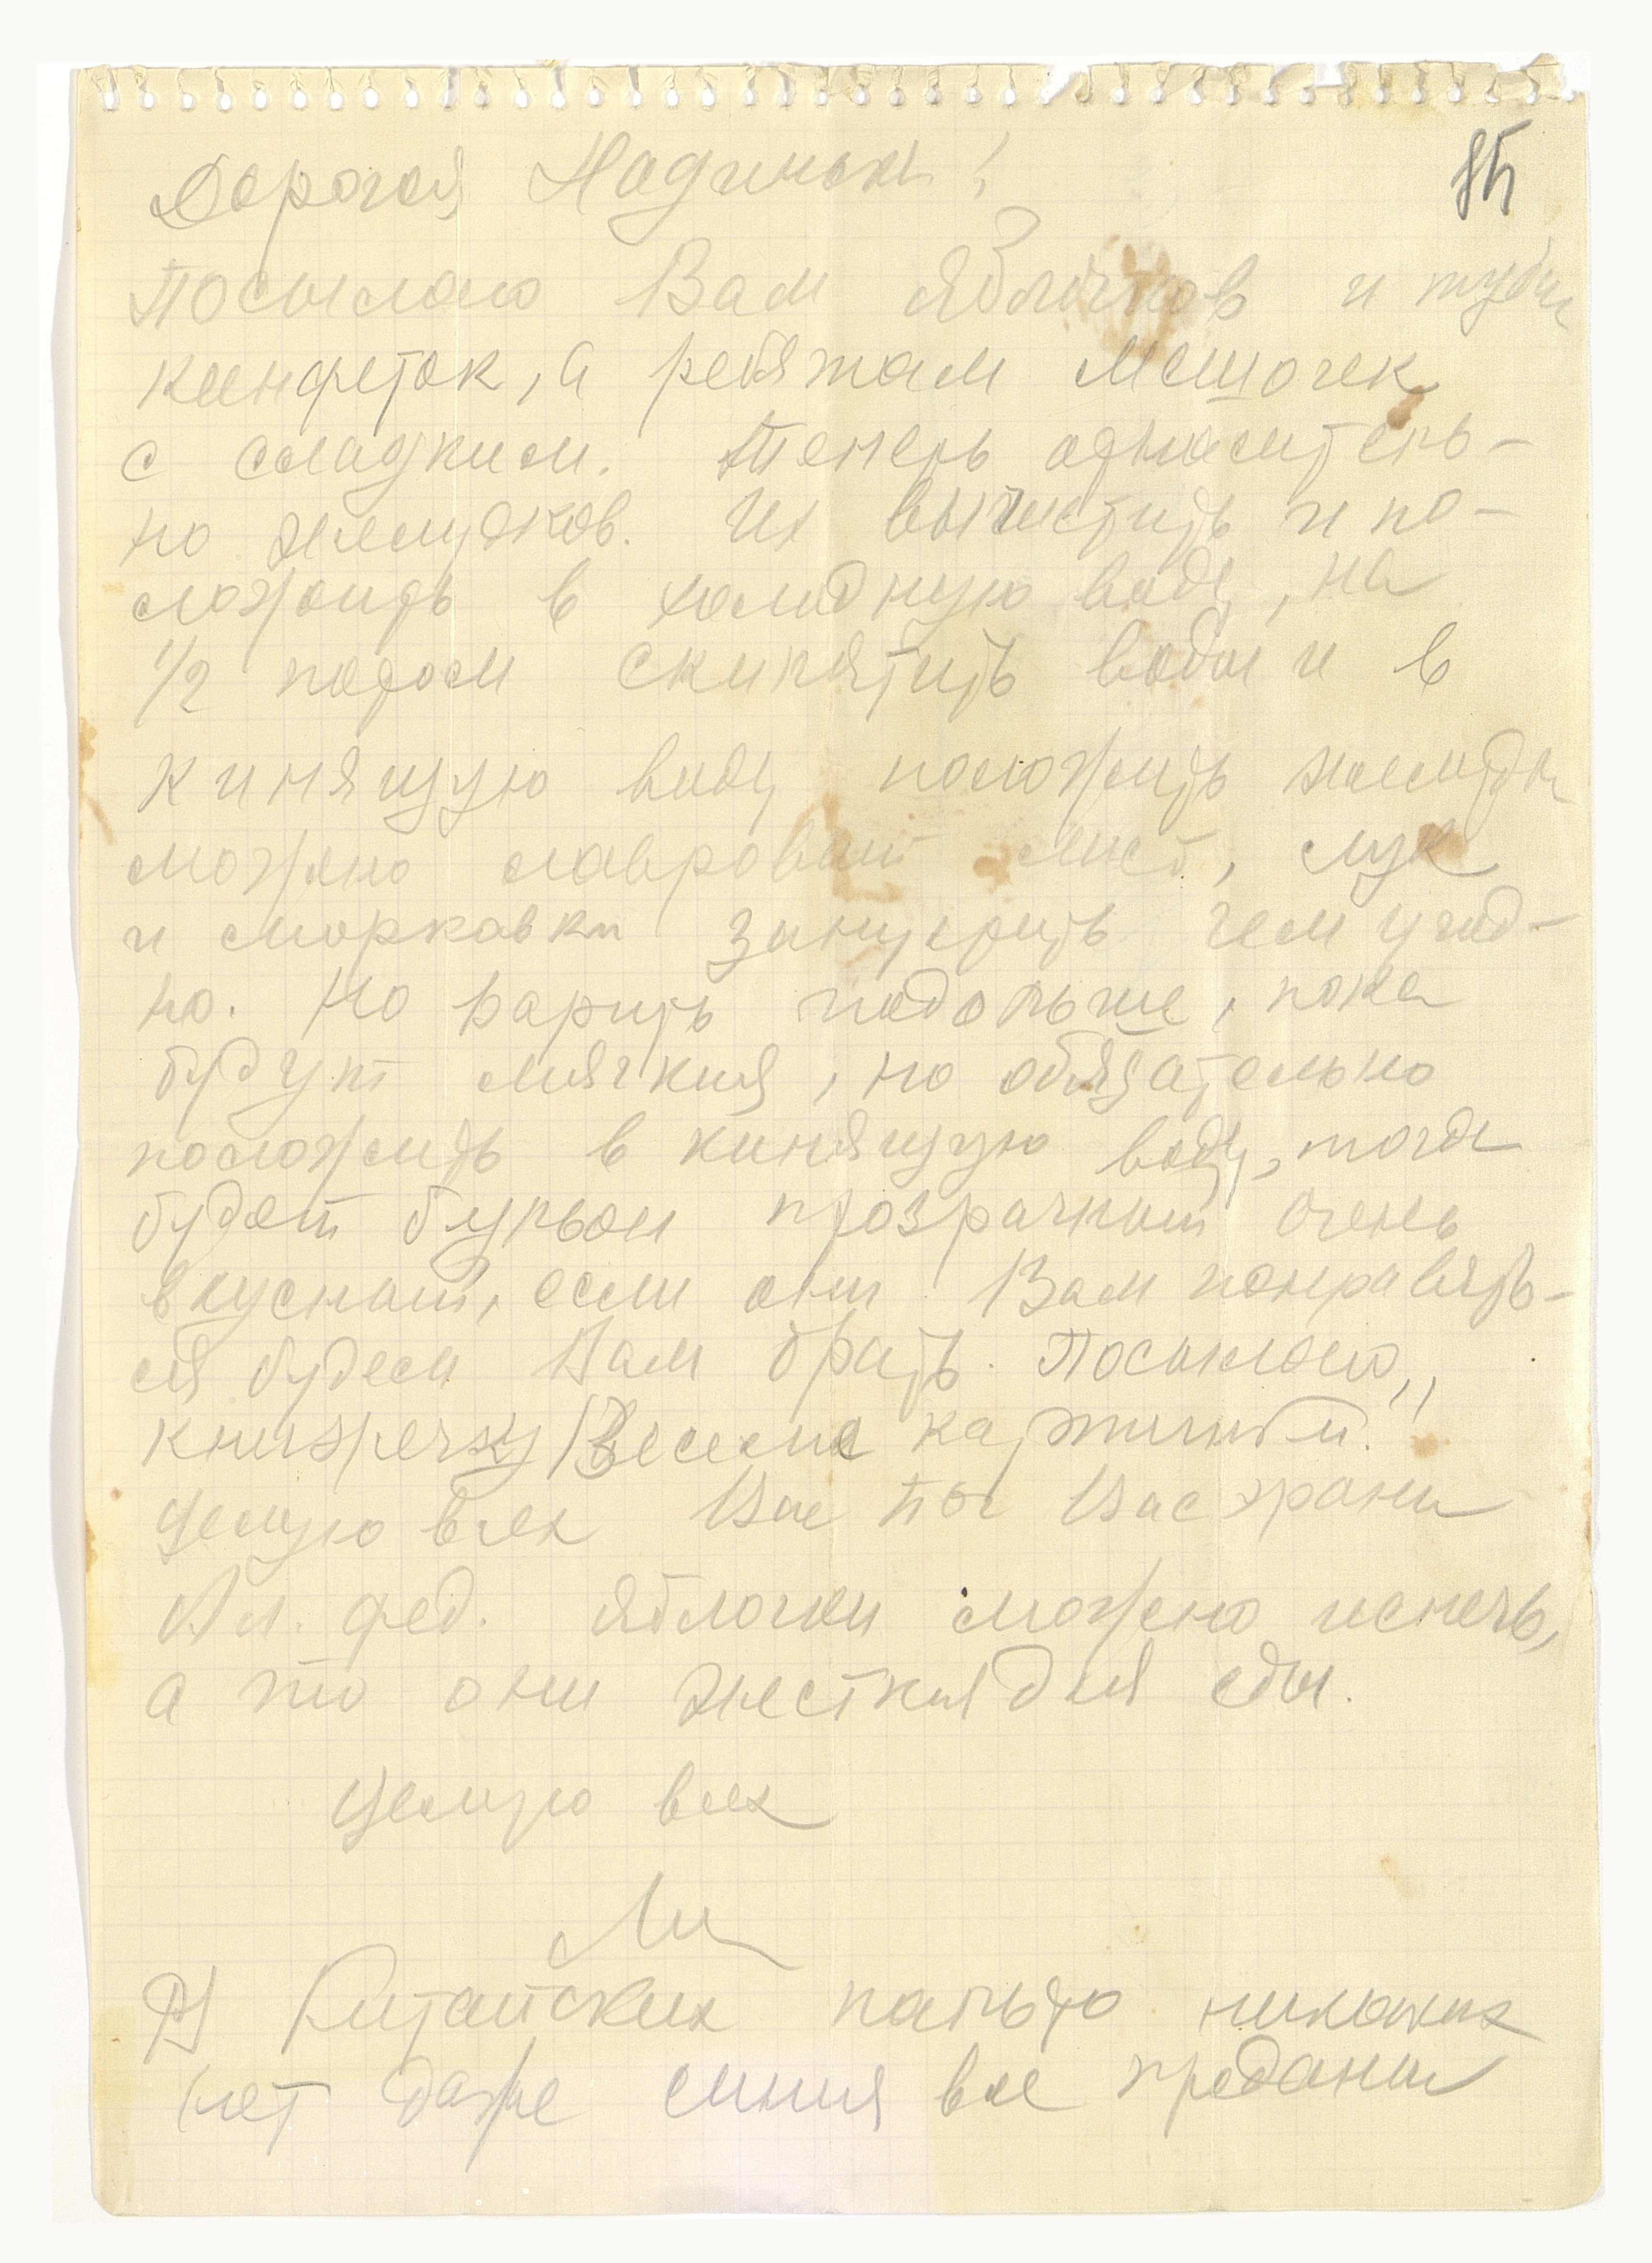 85
Дорогая Надинька!
Посылаю Вам яблочков и
конфеток, а ребятам мешочек
с сладким. Теперь относитель-
но желудков. Их вычистить и по-
ложить в холодную воду, на
1/2 потом скипятить воды и в
кипящую воду положить желудки
можно лавровый лист, лук
и морковки заправить чем угод-
но. Но варить подольше, пока
будут мягкия, но обязательно
положить в кипящую воду, тогда
будет бульон прозрачный очень
вкусный, если они Вам понравять-
ся будем Вам брать. Посылаю
книжечку "Веселые картинки".
Целую всех Вас Хр Вас храни
Ал. Фед. яблочки можно испечь,
а то они жесткия для еды.
Целую всех
Ли
Китайских пальто никаких
нет даже синия все проданы